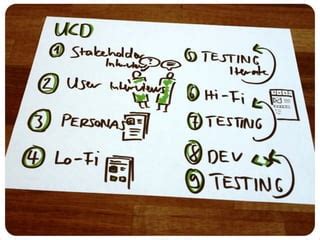 UCD
1 Stakeholder
Interviews
2 User Interviews
3 PERSONAS
4 Lo-Fi
5 TESTING
Iterate
6 Hi-Fi
7 TESTING
8 DEV
9 TESTING